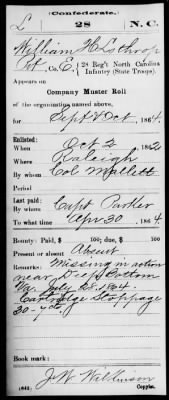 (Confederate.)
L 28 N. C.
William H Lothrop
Pvt, Co. E, 28 Reg't North Carolina
Infantry (State Troops)
Appears on
Company Muster Roll
of the organization named above,
for Sept & Oct, 1864.
Enlisted:
When Oct 2, 1862
Where Raleigh
By whom Col Mallett
Period
Last paid:
By whom Capt Parker
To what time Apr 30, 1864
Bounty: Paid, $ 100; due, $ 100
Present or absent Absent
Remarks: Missing in action
near Deep Bottom
Va. July 28. 1864.
Cartridge Stoppage
Book mark:
J W Wilkinson
(642) Copyist.